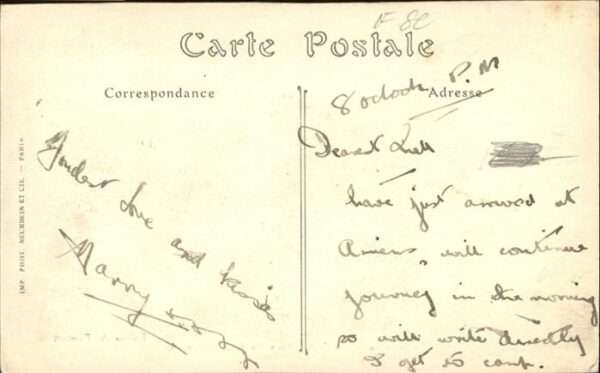 F 80
Carte Postale
Correspondance
Adresse
8 oclock P.M
Dearest
have just arrived at
Amiens, will continue
journey in the morning
so will write directly
I get to camp.
Fondest love and kisses
Harry xxxx
IMP. PHOT. NEURDEIN ET CIE. — PARIS